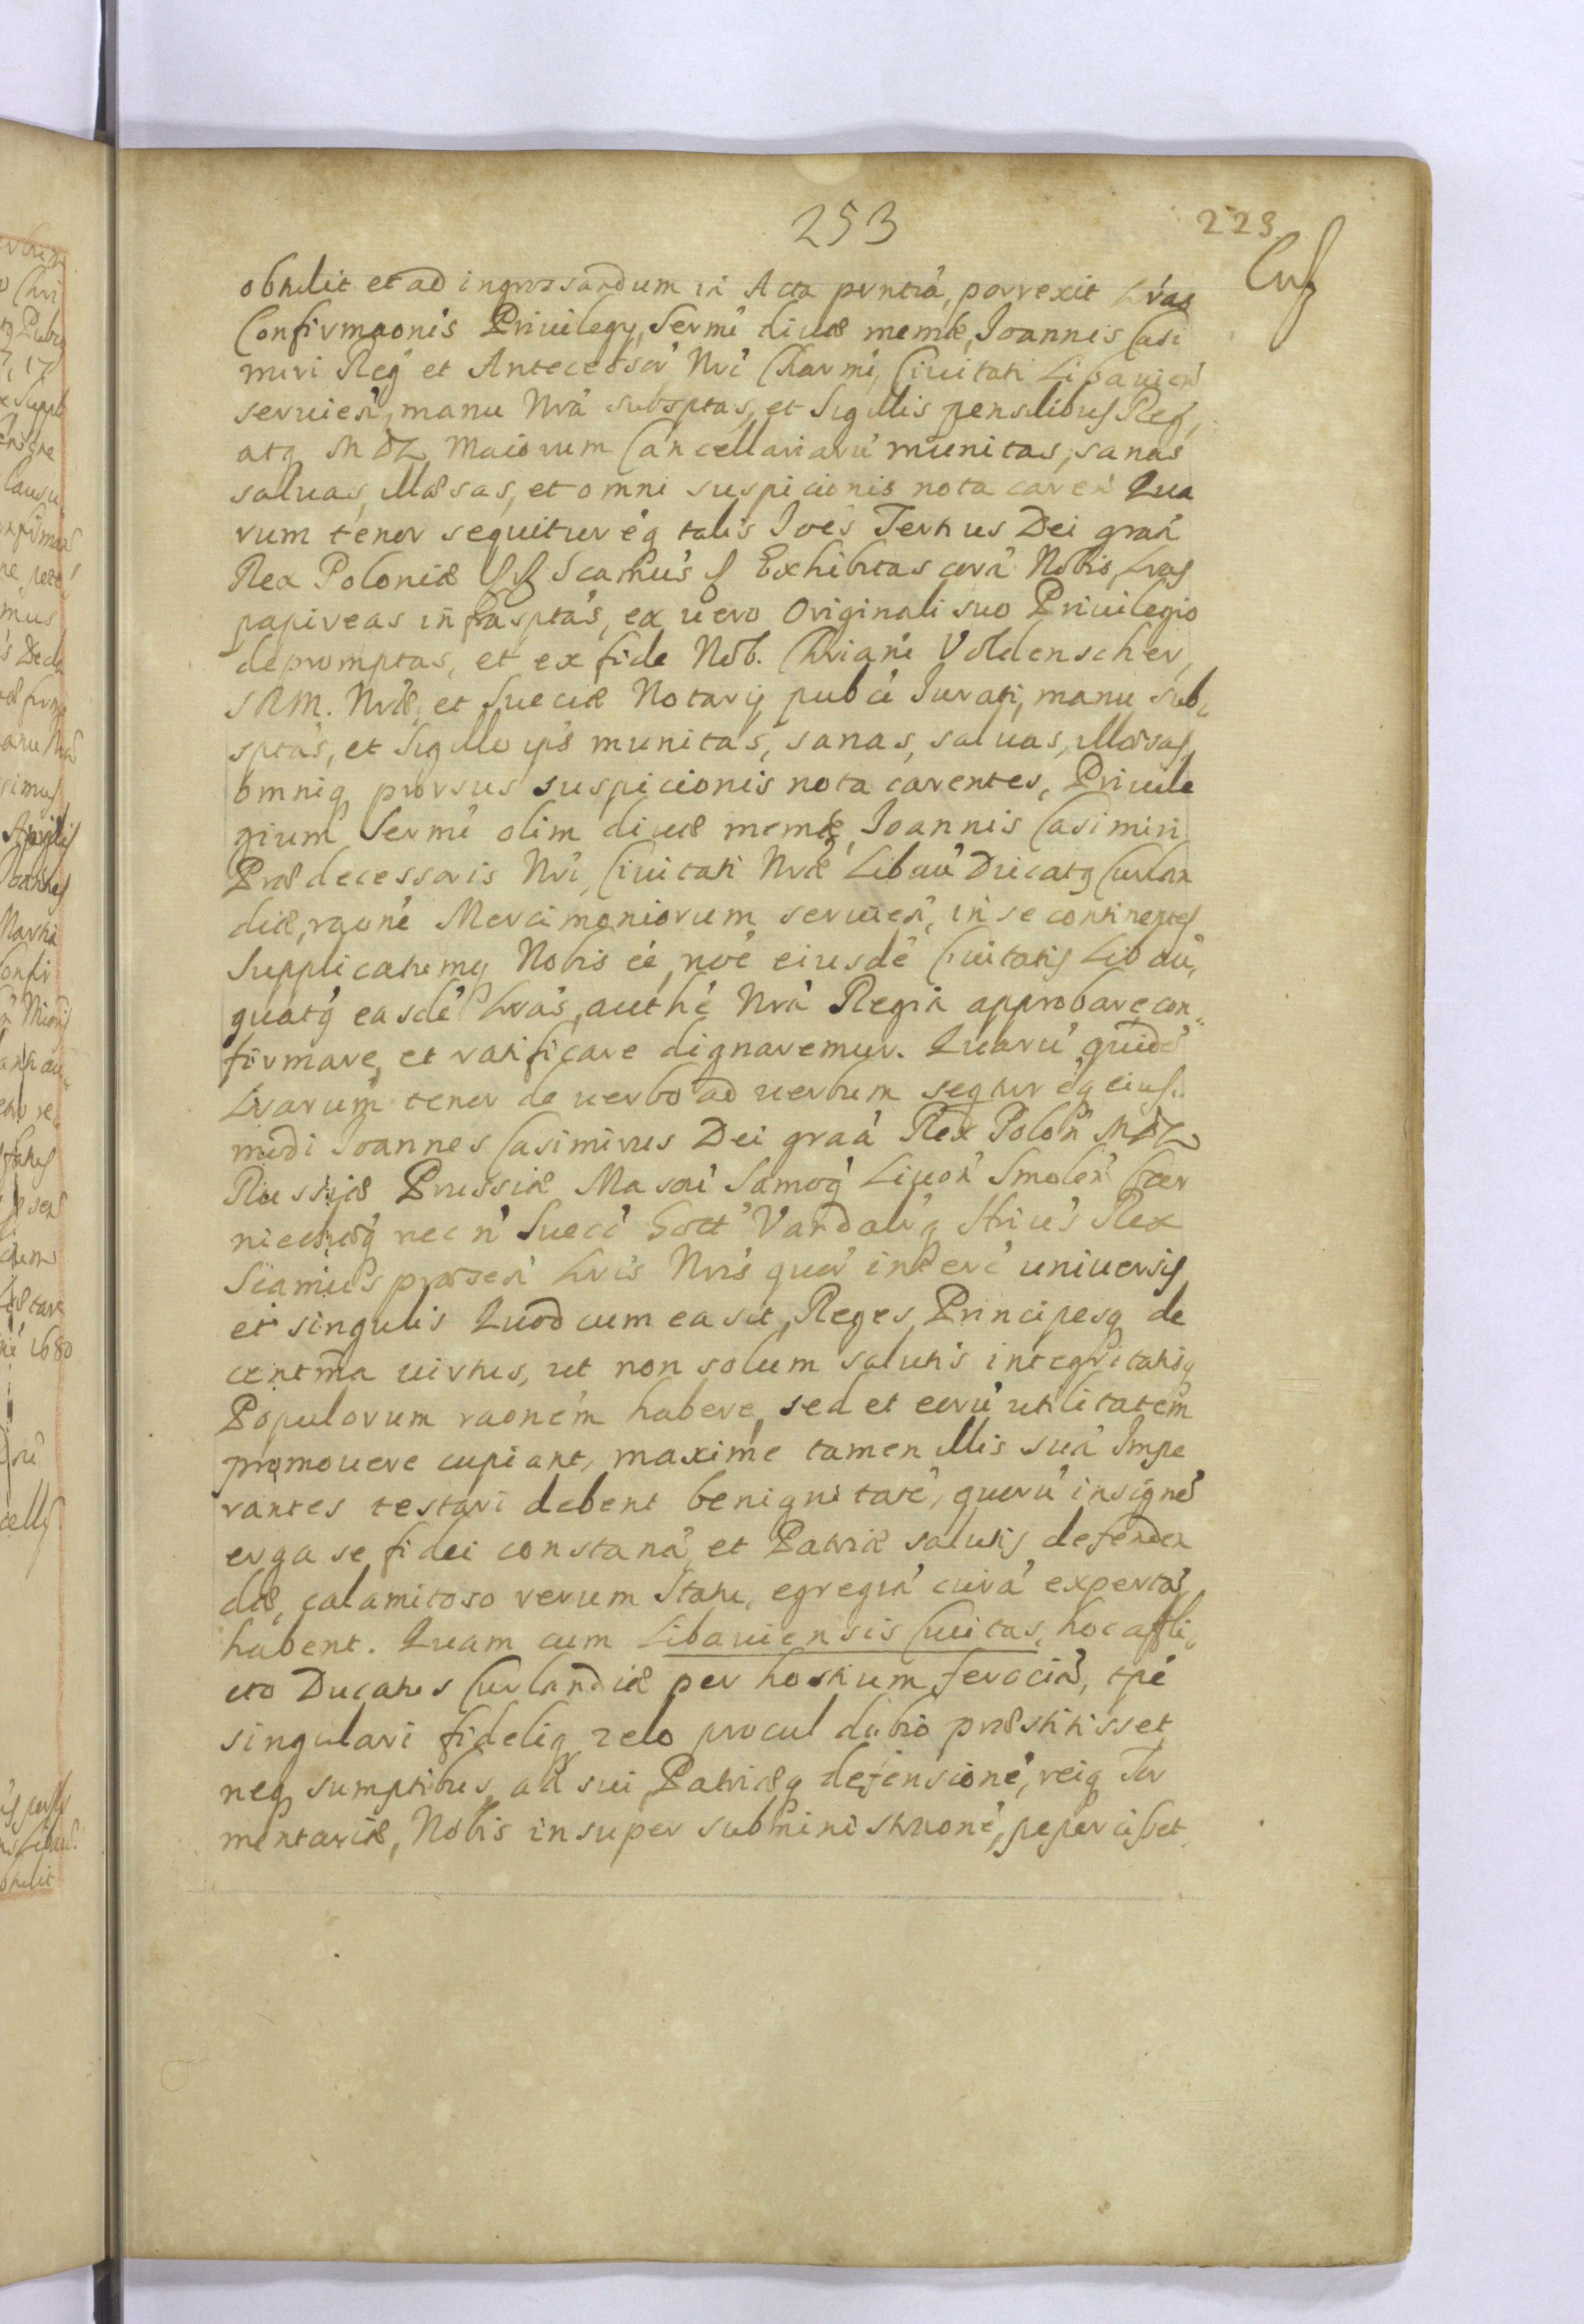 253
223
Cuf
obtulit et ad ingrossandum in Acta pvntia, porrexit Lras
Confirmaonis Priuilegij, Sermi diuæ memæ, Joannis Casi
miri Reg et Antecessor Nri Charmi, Ciuitati Libauien
seruien, manu Nra subsptas, et Sigillis pensilibus Reg,
atq MDL Maiorum Cancellariarũ munitas, sanas
saluas, illæsas, et omni suspicionis nota caren Qua
rum tenor sequitur éq talis Joés Tertius Dei graa
Rex Poloniæ Scamús Exhibitas corá Nobis Lras
papireas infrasptas, ex uero Originali suo Priuilegio
depromptas, et ex fide Nob. Chriani Voldenscher,
SRM. Nræ, et Sueciæ Notarij pubci Jurati, manu sub„
sptas, et Sigillo ips munitas, sanas, saluas, illæsas,
omniq prorsus suspicionis nota carentes, Priuile
gium Sermi olim diuæ memæ, Joannis Casimiri
Prædecessoris Nri, Ciuitati Nræ Libau Ducatq Curlan
diæ, raoné Mercimoniorum seruien, in se continentes
Supplicatumq Nobis éé, noé eiusdé Ciuitatis Libau,
quatq easdé Lras, authé Nra Regia approbare, con„
firmare, et ratificare dignaremur. Quarũ quidé
Lrarum tenor de uerbo ad uerbum seqtur éq eius„
modi Joannes Casimirus Dei graa Rex Polon MDL
Russiæ Prussiæ Masoú Samog Liuon Smolen Czer
niechouq nec n Suecó Gott Vandalq Hæús Rex
Scamús præsen Lris Nris quor interé uniuersis
et singulis Quod cum ea sit, Reges, Principesq de
centma uirtus, ut non solum salutis integritatisq
Populorum raonem habere, sed et eorũ utilitatem
promouere cupiant, maxime tamen illis suá Impe
rantes testari debent benignitaté, quorũ insigné
erga se fidei constaná, et Patriæ salutis defenden
dæ, calamitoso rerum Statu, egregiá curá expertá
habent. Quam cum Libauiensis Ciuitas, hoc affli„
cto Ducatus Curlandiæ per hostium ferociá, tpé
singulari fideliq zelo procul dubio præstitisset
neq sumptibus, ad sui, Patriæq defensioné, reiq Tor
mentariæ, Nobis insuper subministraoné, pepercisset